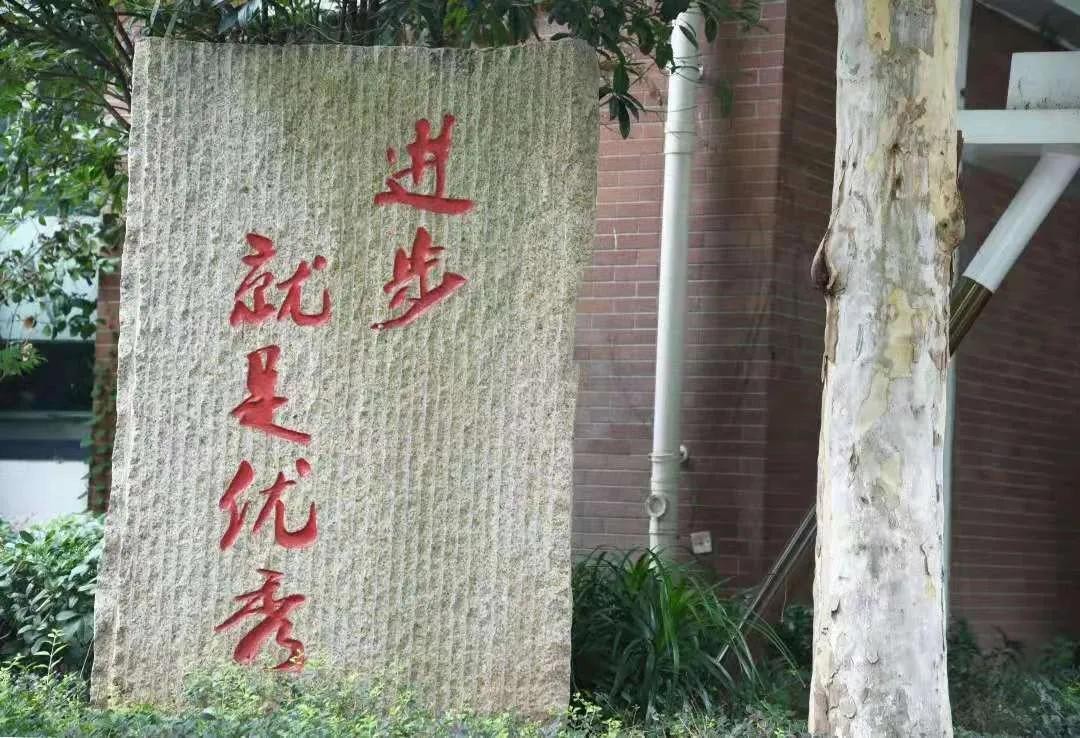 进步
就是优秀